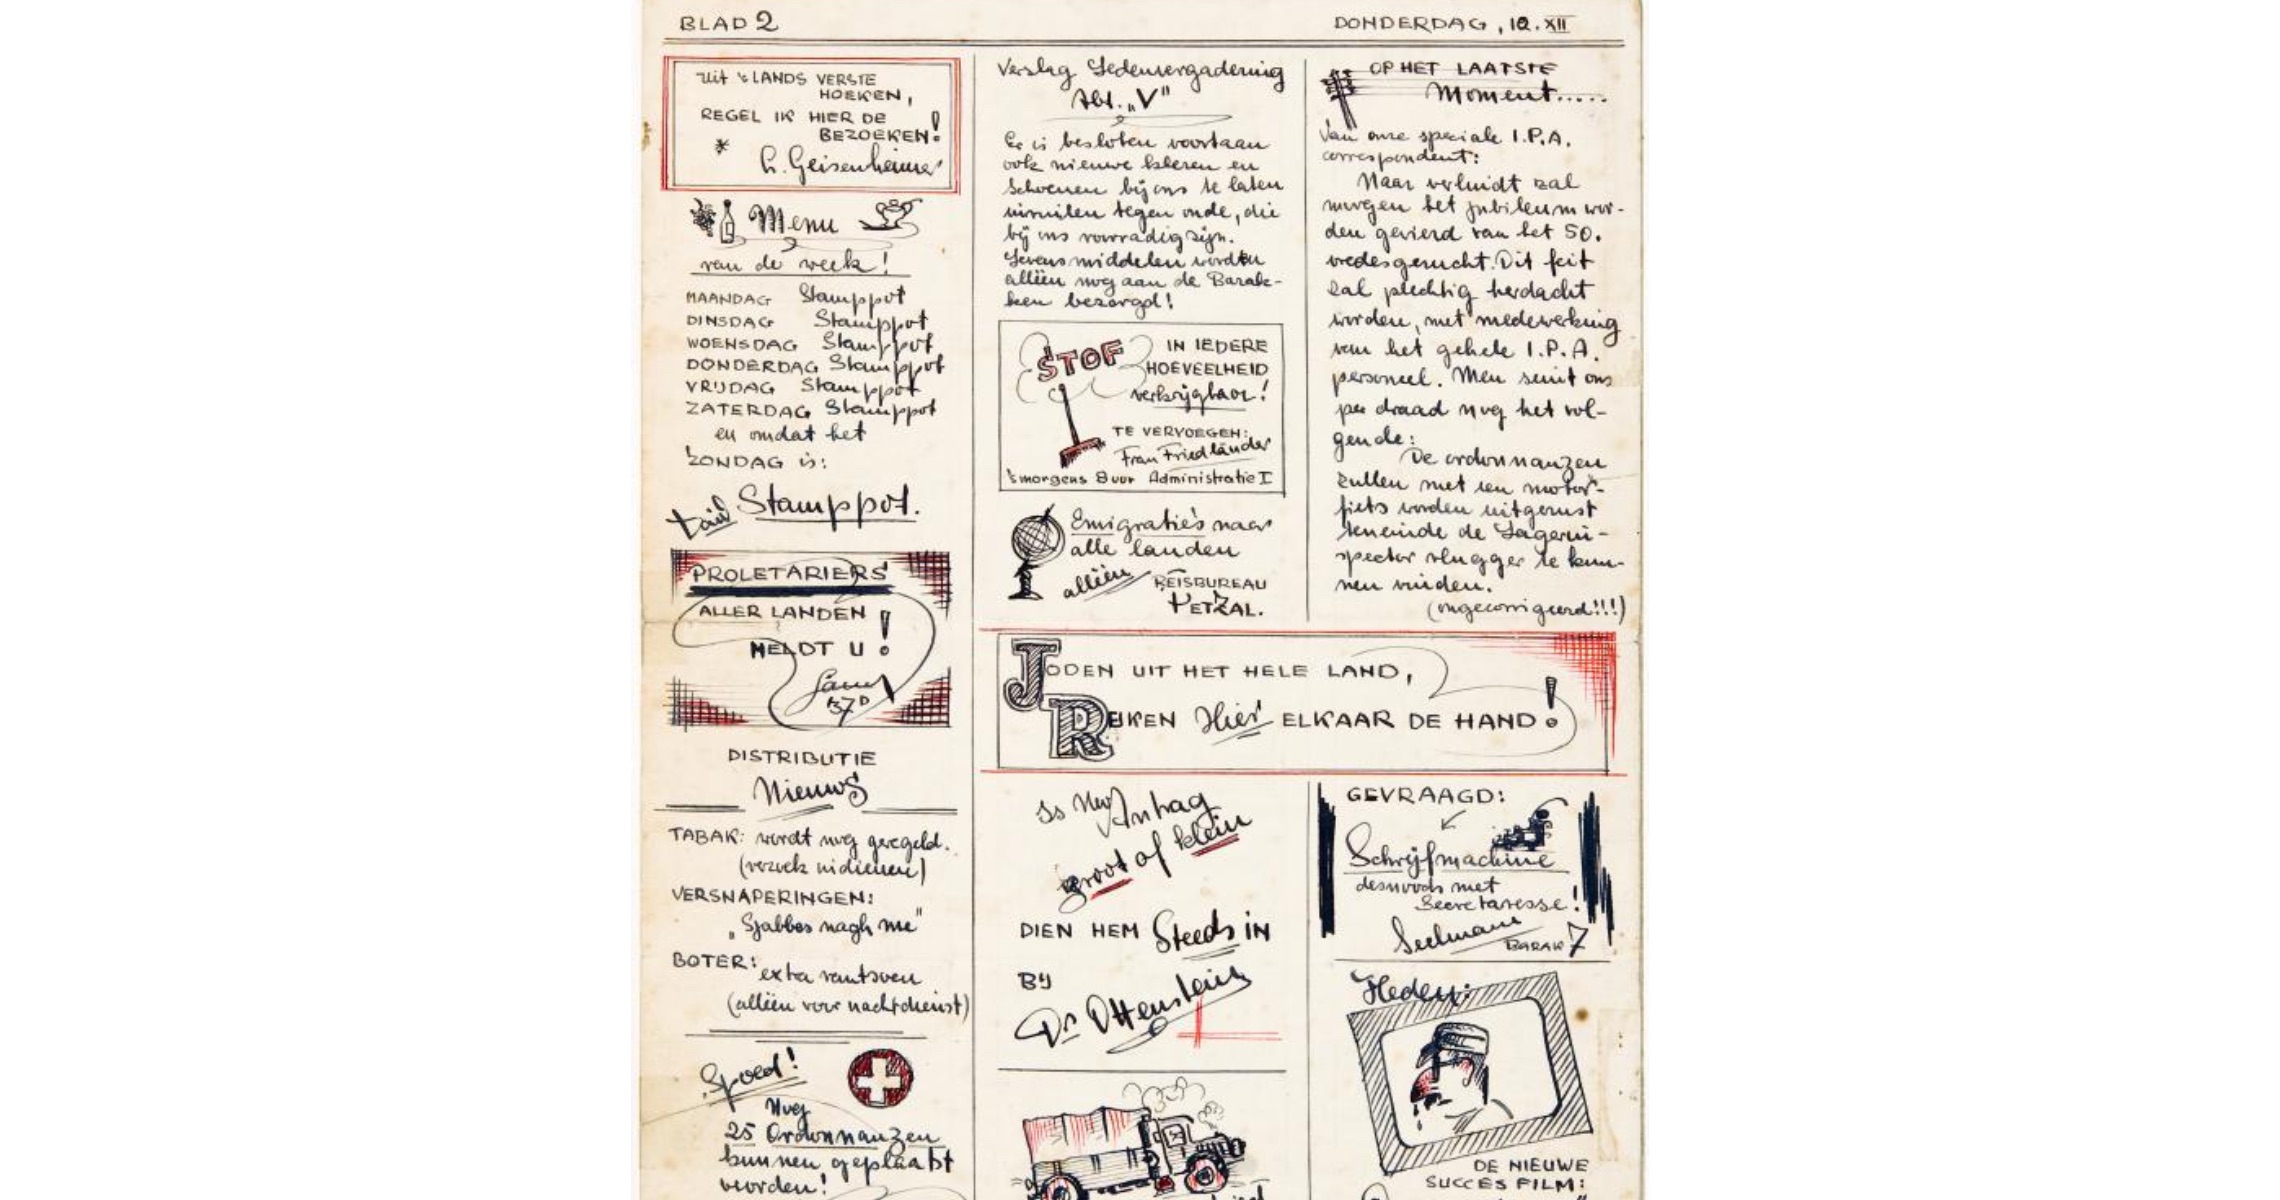 BLAD 2
DONDERDAG, 10.XII
Uit 's LANDS VERSTE
HOEKEN,
REGEL IK HIER DE
BEZOEKEN!
G. Geisenheimer
Menu
van de week!
MAANDAG Stamppot
DINSDAG Stamppot
WOENSDAG Stamppot
DONDERDAG Stamppot
VRIJDAG Stamppot
ZATERDAG Stamppot
en omdat het
ZONDAG is:
Stamppot.
PROLETARIERS
ALLER LANDEN
MELDT U!
37D
DISTRIBUTIE
Nieuws
TABAK: wordt nog geregeld.
(verzoek indienen)
VERSNAPERINGEN:
"Sjabbos nagh me"
BOTER: extra rantsoen
(alléén voor nachtdienst)
Spoed!
Nog
25 Ordonnanzen
kunnen geplaatst
worden!
Verslag Ledenvergadering
Abt. "V"
Er is besloten voortaan
ook nieuwe kleren en
schoenen bij ons te laten
inruilen tegen oude, die
bij ons voorradig zijn.
Levensmiddelen worden
alléén nog aan de Barak-
ken bezorgd!
STOF
IN IEDERE
HOEVEELHEID
verkrijgbaar!
TE VERVOEGEN:
Frau Friedländer
'smorgens 8 uur Administratie I
Emigratie's naar
alle landen
alléén REISBUREAU
PETZAL.
OP HET LAATSTE
Moment.....
Van onze speciale I.P.A.
correspondent:
Naar verluidt zal
morgen het jubileum wor-
den gevierd van het 50.
vredesgerucht. Dit feit
zal plechtig herdacht
worden, met medewerking
van het gehele I.P.A.
personeel. Men seint ons
per draad nog het vol-
gende:
De ordonnanzen
zullen met een motor-
fiets worden uitgerust
teneinde de Lagerin-
spector vlugger te kun-
nen vinden.
(ongecorrigeerd!!!)
JODEN UIT HET HELE LAND,
REIKEN Hier ELKAAR DE HAND!
Is Uw Antrag
groot of klein
DIEN HEM Steeds IN
BIJ
Dr. Ottenstein
GEVRAAGD:
Schrijfmachine
desnoods met
Secretaresse!
Seelmann
BARAK 7
Heden:
DE NIEUWE
SUCCES FILM: